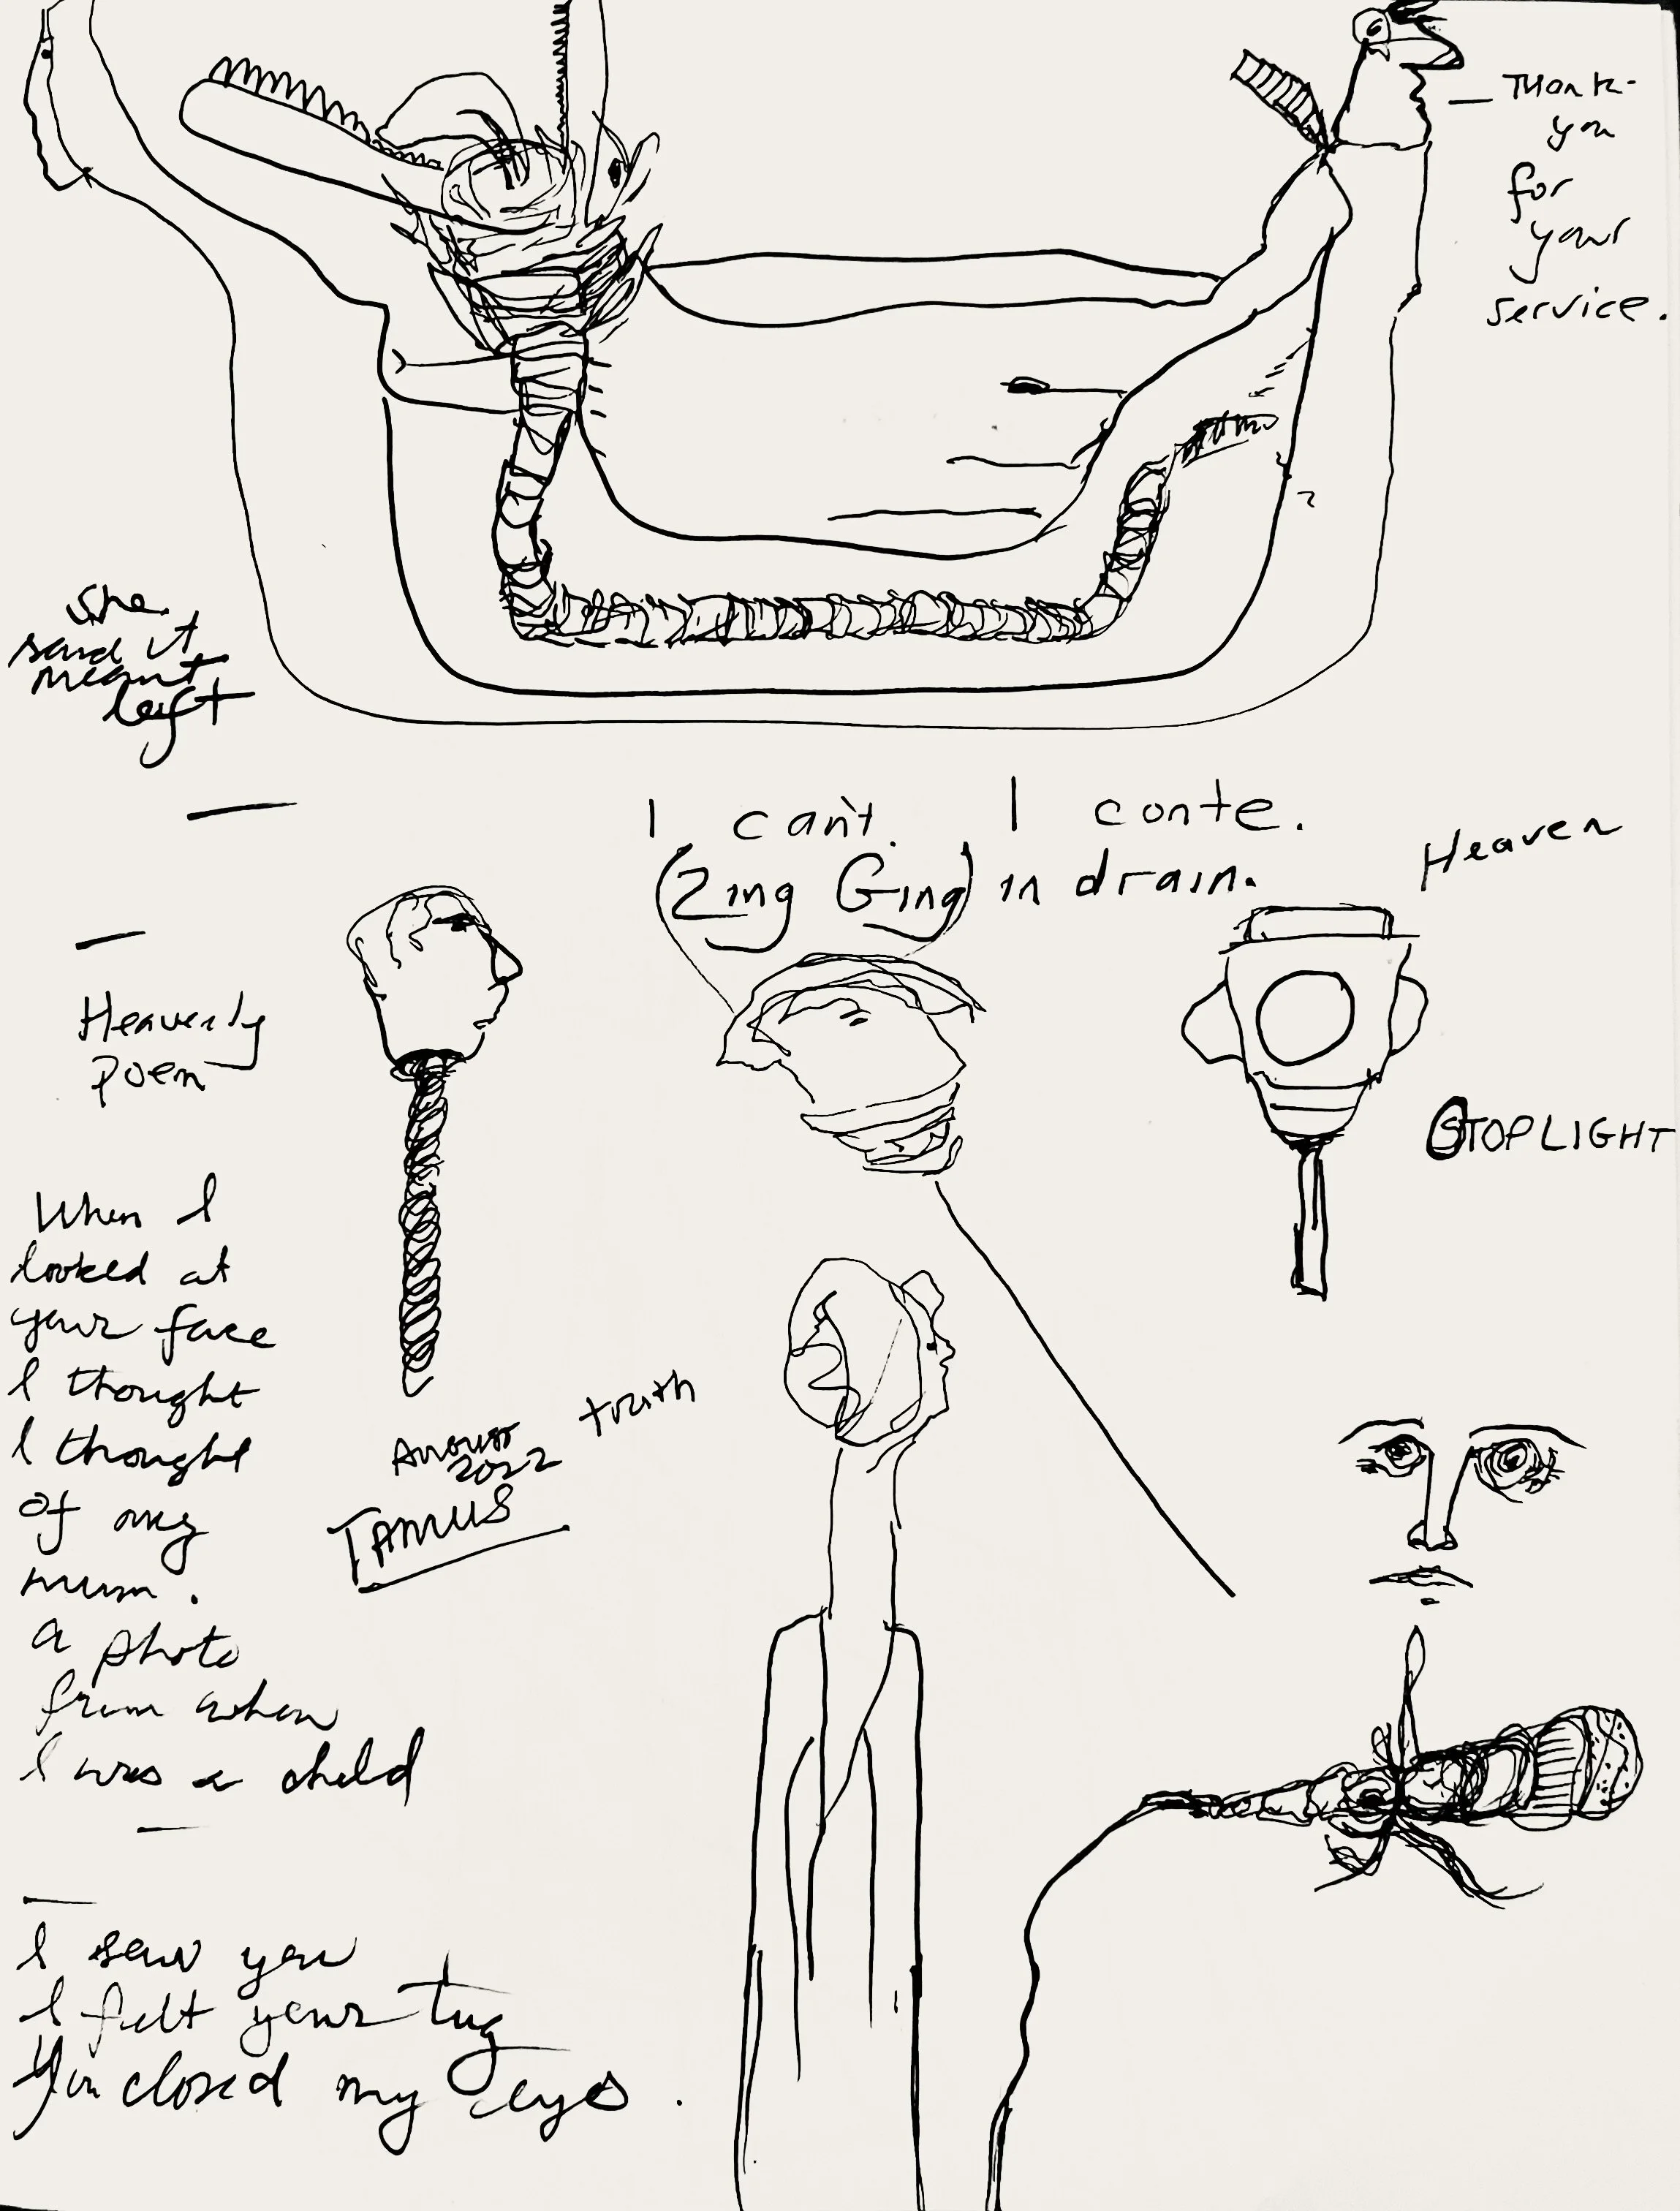 Thank-
you
for
your
service.
she
said it
meant
left
I can't. I conte.
(Zing Ging) in drain.
Heaven
Heavenly
Poem
STOPLIGHT
When I
looked at
your face
I thought
I thought
of my
mum.
a photo
from when
I was a child
truth
August
2022
I saw you
I felt your tug
You closed my eyes.